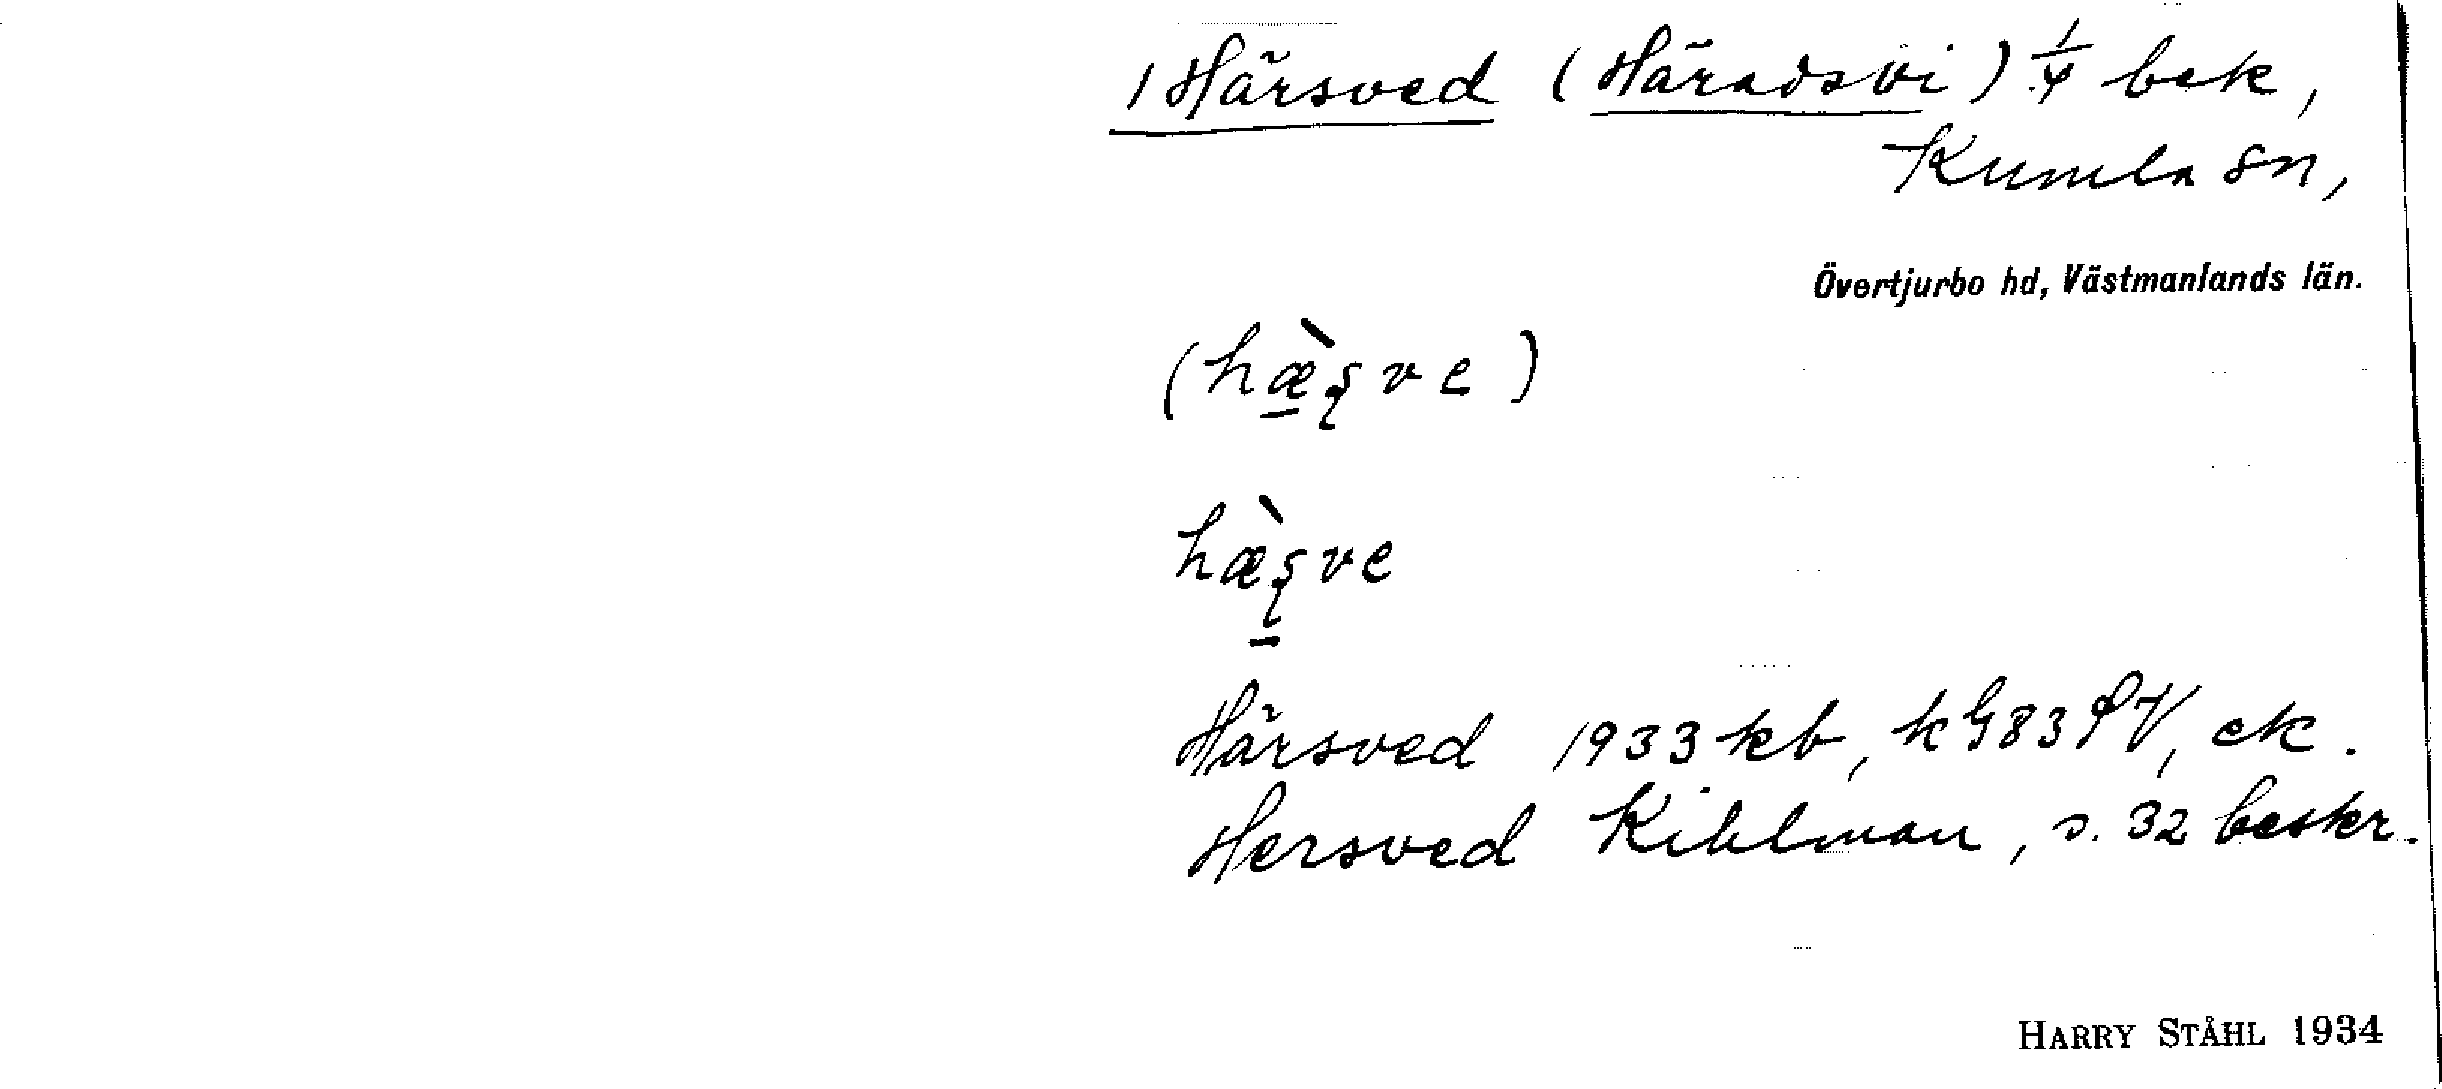 1 Härsved (Häradsvi) 1/4 bek,
Kumla sn,
Övertjurbo hd, Västmanlands län.
(hæ̀ʂve)
hæ̀ʂve
Härsved 1933 kb, k 83 ek.
Hersved Kihlman, s. 32 beskr.
HARRY STÅHL 1934